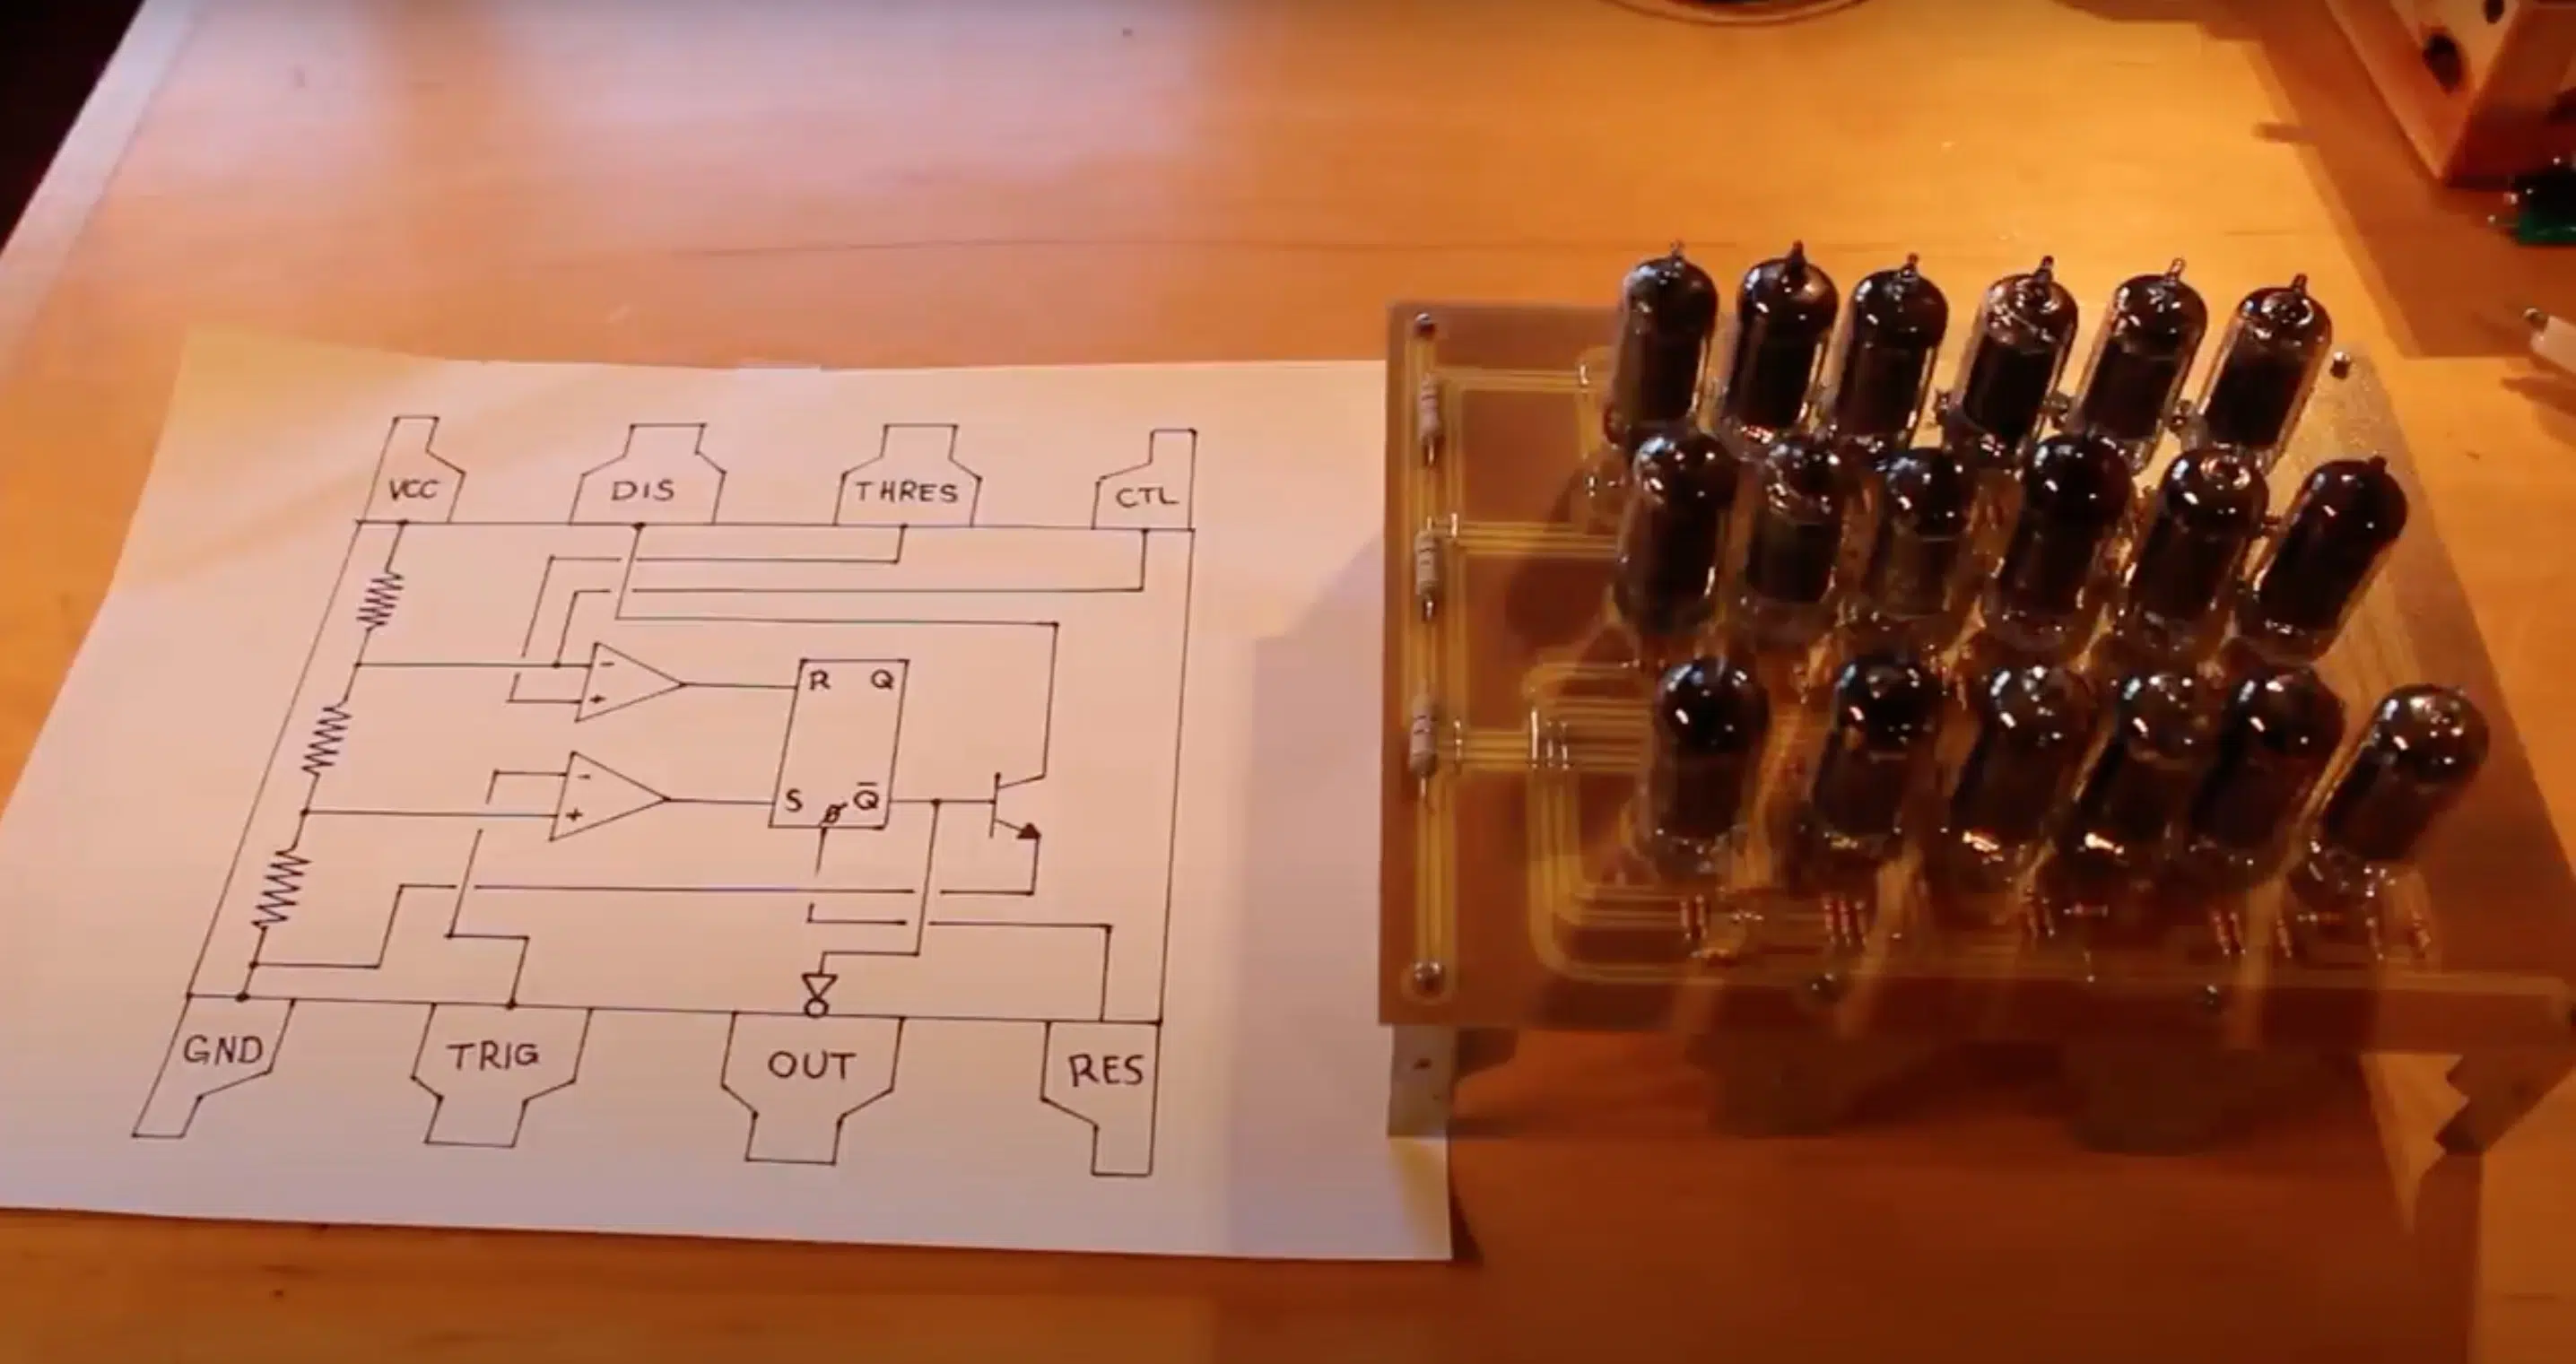 VCC DIS THRES CTL
- 
+
R Q
-
+
S Q̅
GND TRIG OUT RES